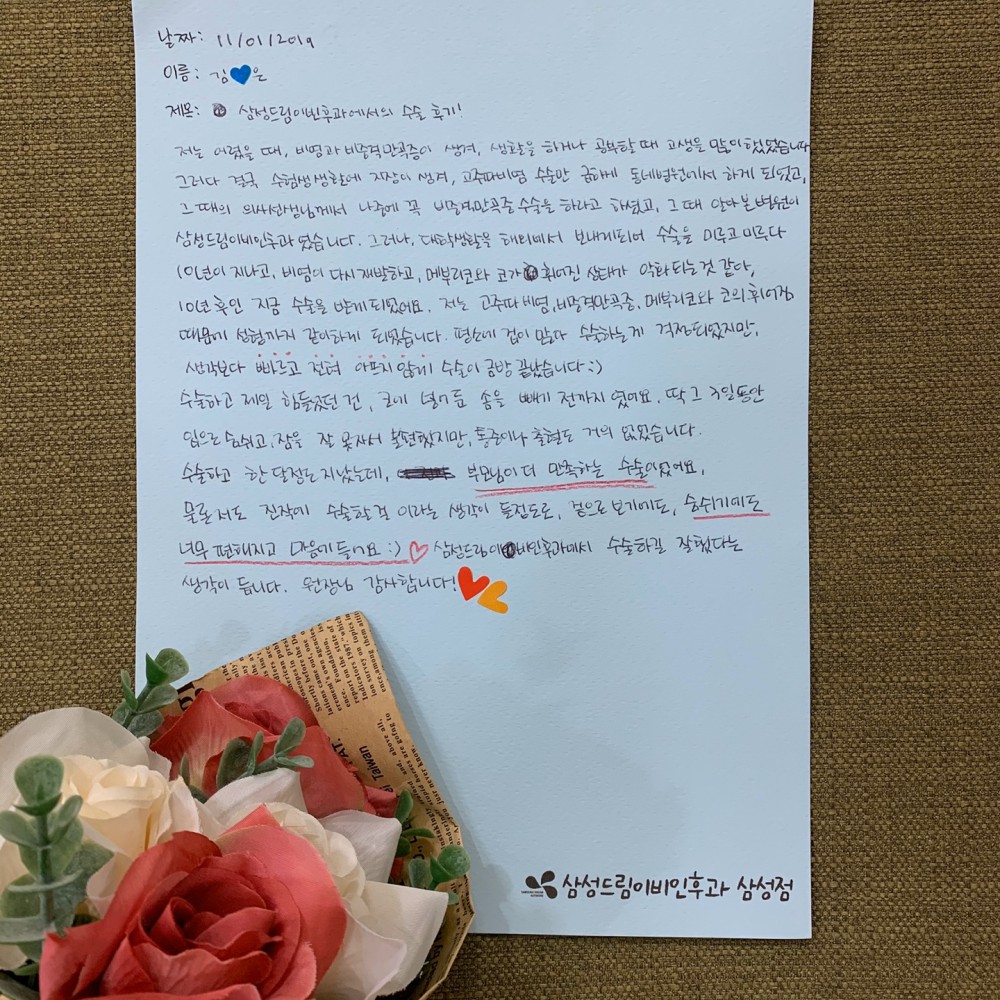 날짜: 11/01/2019
이름: 김💙은
제목: 삼성드림이비인후과에서의 수술 후기!
저는 어렸을 때, 비염과 비중격만곡증이 생겨, 생활을 하거나 공부할 때 고생을 많이 했었습니다
그러다 결국 수험생 생활에 지장이 생겨, 고주파비염 수술만 급하게 동네병원에서 하게 되었고,
그 때의 의사선생님께서 나중에 꼭 비중격만곡증 수술을 하라고 하셨고, 그 때 알아본 병원이
삼성드림이비인후과 였습니다. 그러나, 대학생활을 해외에서 보내게되어 수술을 미루고 미루다
10년이 지나고, 비염이 다시 재발하고, 메부리코와 코가 휘어진 상태가 악화되는것 같아,
10년 후인 지금 수술을 받게 되었어요. 저는 고주파 비염, 비중격만곡증, 메부리코와 코의 휘어짐
때문에 성형까지 같이하게 되었습니다. 평소에 겁이 많다 수술하는게 걱정되었지만,
생각보다 빠르고 전혀 아프지 않게 수술이 금방 끝났습니다 :)
수술하고 제일 힘들었던 건, 코에 넣어둔 솜을 빼기 전까지 였어요. 딱 그 3일동안
입으로 숨쉬고, 잠을 잘 못자서 불편했지만, 통증이나 출혈도 거의 없었습니다.
수술하고 한 달정도 지났는데, 부모님이 더 만족하는 수술이었어요.
물론 저도 진작에 수술할걸 이라는 생각이 들정도로, 겉으로 보기에도, 숨쉬기에도
너무 편해지고 마음에 들어요 :) ♡ 삼성드림이비인후과에서 수술하길 잘했다는
생각이 듭니다. 원장님 감사합니다!
삼성드림이비인후과 삼성점